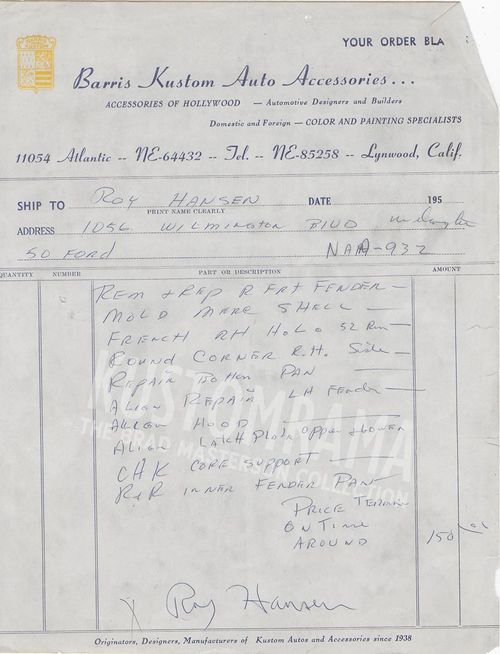 YOUR ORDER BLA
Barris Kustom Auto Accessories...
ACCESSORIES OF HOLLYWOOD — Automotive Designers and Builders
Domestic and Foreign — COLOR AND PAINTING SPECIALISTS
11054 Atlantic -- NE-64432 -- Tel. -- NE-85258 -- Lynwood, Calif.
SHIP TO ROY HANSEN DATE 195
PRINT NAME CLEARLY
ADDRESS 1056 WILMINGTON BLVD
50 FORD NAA-932
QUANTITY NUMBER PART OR DESCRIPTION AMOUNT
REM + REP R FRT FENDER —
MOLD MERC SHELL —
FRENCH RH 52 —
ROUND CORNER R.H. Side —
REPAIR Bottom PAN —
ALIGN REPAIR LH Fender —
ALIGN HOOD —
Align LATCH Plate Upper + Lower
CHK CORE SUPPORT —
R+R INNER FENDER PAN
PRICE
ON TIME
AROUND 150
Roy Hansen
KUSTOMRAMA
THE BRAD MASTERSON COLLECTION
Originators, Designers, Manufacturers of Kustom Autos and Accessories since 1938